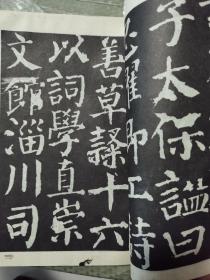 子太保諡曰
曜卿工詩
善草隸十六
以詞學直崇
文館淄川司